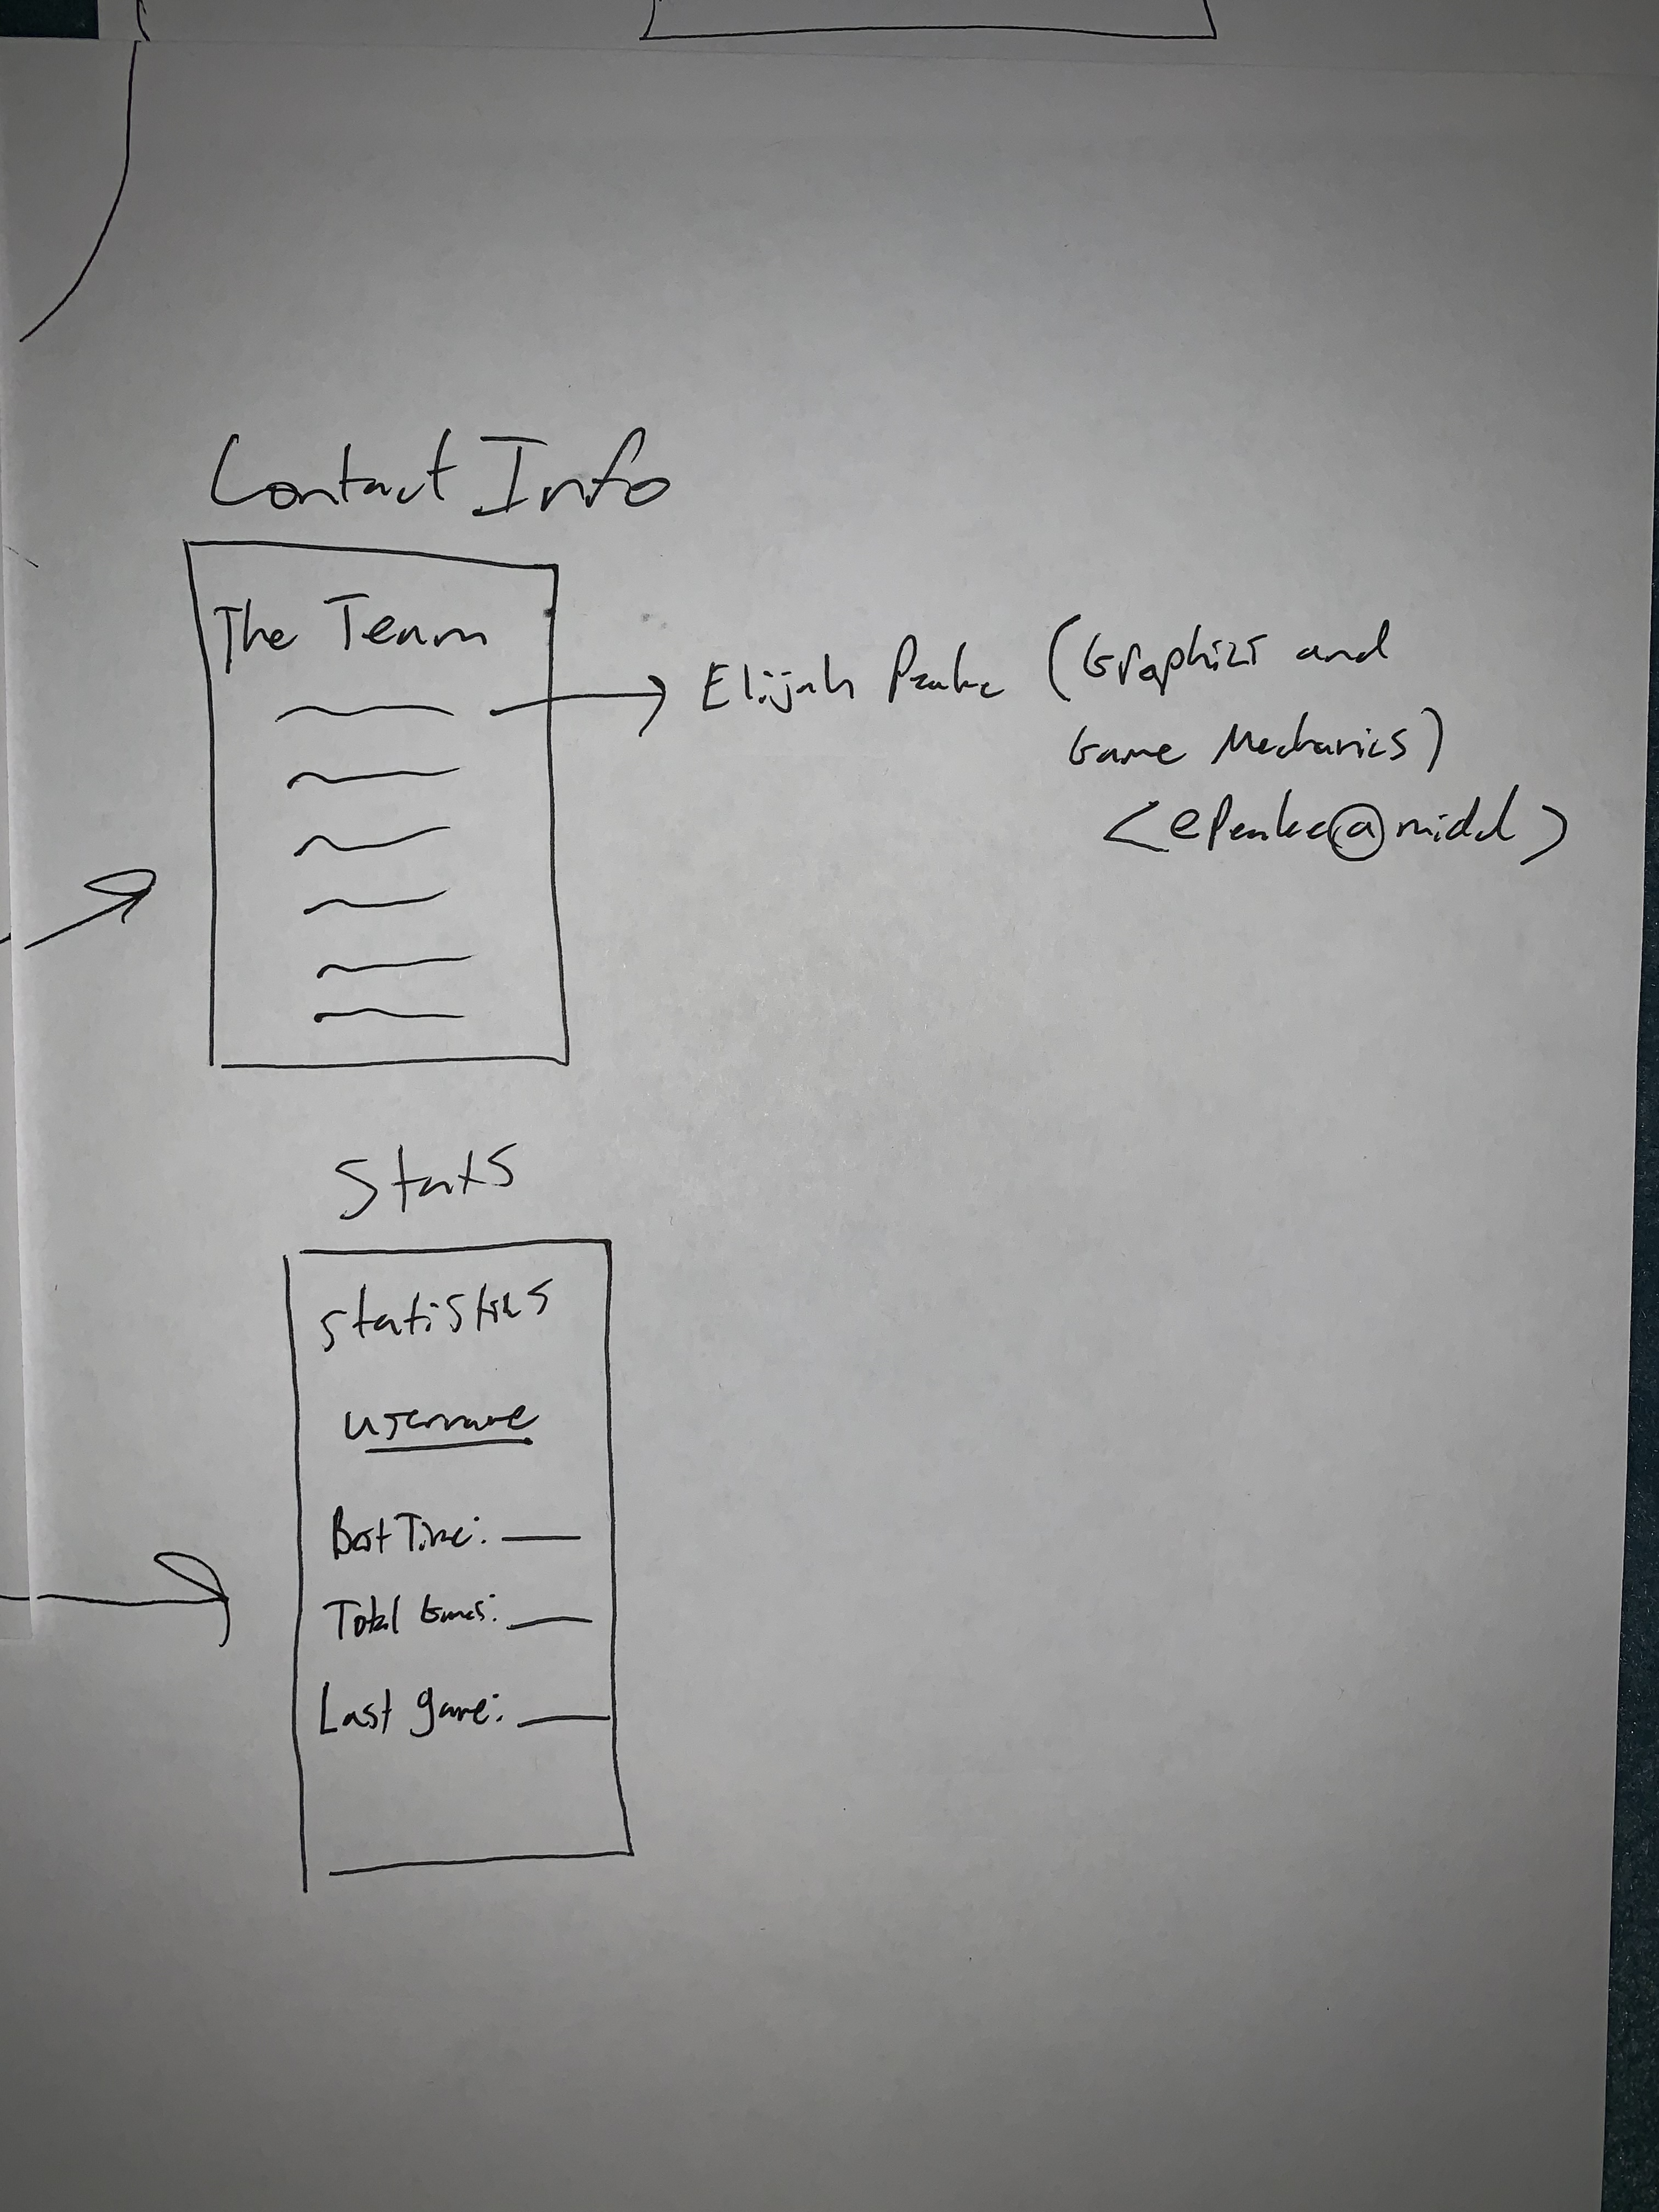 Contact Info
The Team
Elijah Peake (Graphics and
Game Mechanics)
<epeake@midd>
Stats
Statistics
username
Best Time:
Total Games:
Last game: